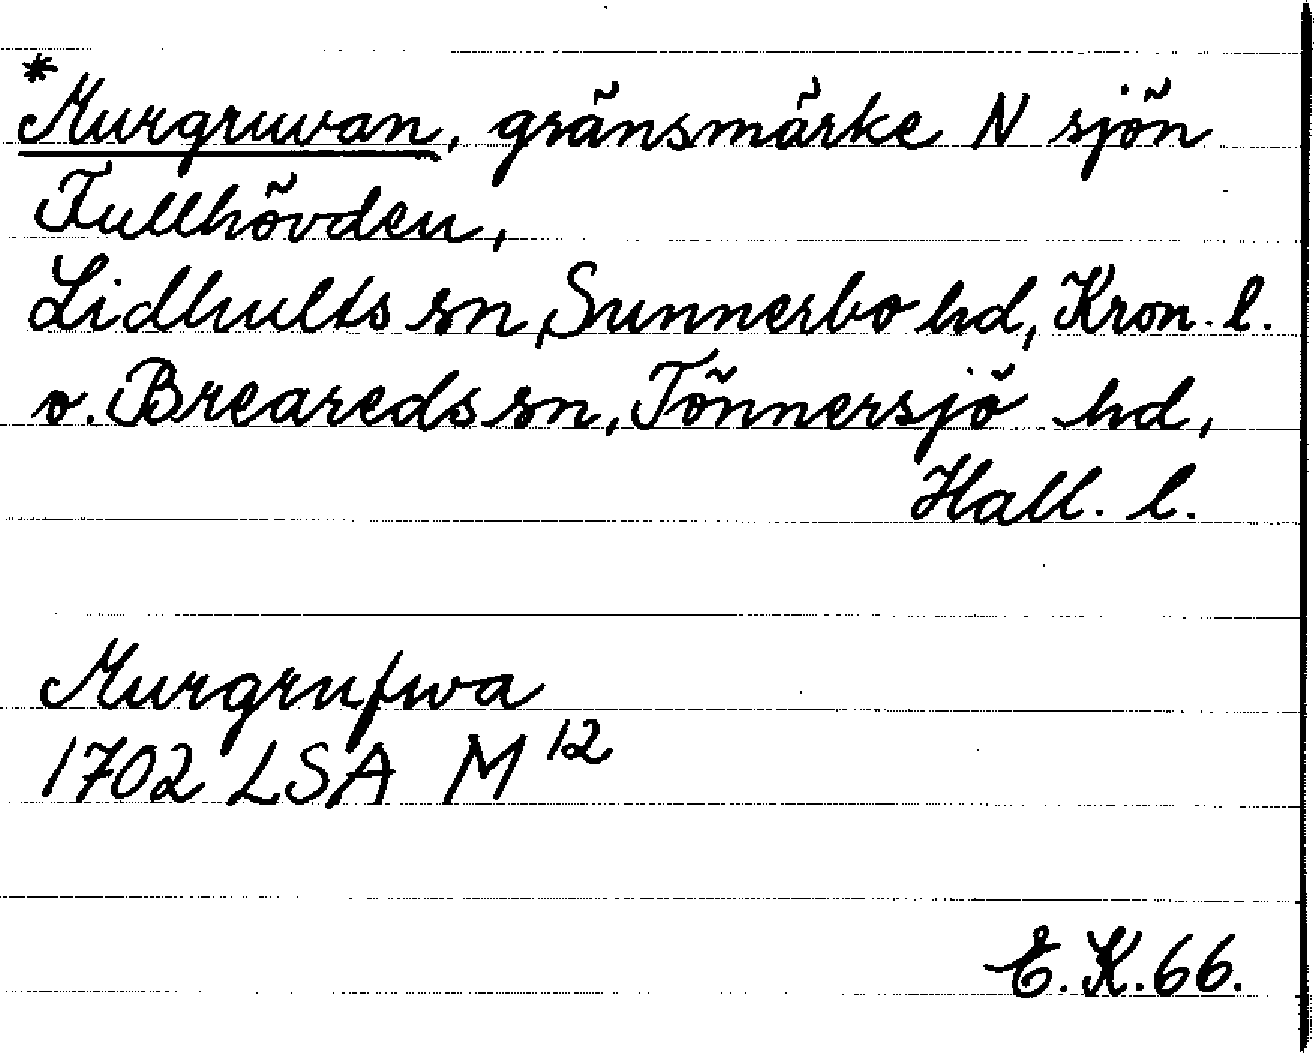 *Murgruvan, gränsmärke N sjön
Fullhövden,
Lidhults sn, Sunnerbo hd, Kron. l.
o. Breareds sn, Tönnersjö hd,
Hall. l.
Murgrufwa
1702 LSA M 12
E. K. 66.